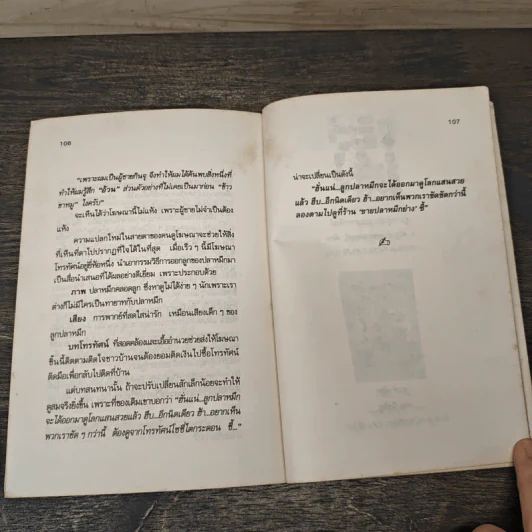 106
"เพราะผมเป็นผู้ชายกันจุ จึงทำให้ผมได้ค้นพบสิ่งหนึ่งที่
ทำให้ผมรู้สึก "อ้วน" ส่วนตัวอย่างที่ไม่เคยเป็นมาก่อน "ข้าว
ขาหมู" ไงครับ"
จะเห็นได้ว่าโฆษณานี้ไม่แห้ง เพราะผู้ชายไม่จำเป็นต้อง
แห้ง
ความแปลกใหม่ในสายตาของคนดูโฆษณาจะช่วยให้สิ่ง
ที่เห็นที่ตาไปปรากฏที่ใจได้ในที่สุด เมื่อเร็ว ๆ นี้มีโฆษณา
โทรทัศน์อยู่ยี่ห้อหนึ่ง นำเอากรรมวิธีการออกลูกของปลาหมึกมา
เป็นสื่อนำเสนอที่ได้ผลอย่างดีเยี่ยม เพราะประกอบด้วย
ภาพ ปลาหมึกคลอดลูก ซึ่งหาดูไม่ได้ง่าย ๆ นักเพราะเรา
ต่างก็ไม่มีใครเป็นทายาทกับปลาหมึก
เสียง การพากย์ที่สดใสน่ารัก เหมือนเสียงเด็ก ๆ ของ
ลูกปลาหมึก
บทโทรทัศน์ ที่สอดคล้องและเอื้ออำนวยส่งให้โฆษณา
ชิ้นนี้ติดตามติดใจชาวบ้านจนต้องยอมติดเงินไปซื้อโทรทัศน์
ติดมือเพื่อกลับไปติดที่บ้าน
แต่บทสนทนานั้น ถ้าจะปรับเปลี่ยนสักเล็กน้อยจะทำให้
ดูสมจริงยิ่งขึ้น เพราะที่ของเดิมเขาบอกว่า "ฮั่นแน่..ลูกปลาหมึก
จะได้ออกมาดูโลกแสนสวยแล้ว ฮึบ...อีกนิดเดียว ฮ้า...อยากเห็น
พวกเราชัด ๆ กว่านี้ ต้องดูจากโทรทัศน์โซชี่ไตกระดอน ชี้..."
107
น่าจะเปลี่ยนเป็นดังนี้
"ฮั่นแน่...ลูกปลาหมึกจะได้ออกมาดูโลกแสนสวย
แล้ว ฮึบ...อีกนิดเดียว ฮ้า...อยากเห็นพวกเราชัดชัดกว่านี้
ลองตามไปดูที่ร้าน 'ชายปลาหมึกย่าง' ชี้"